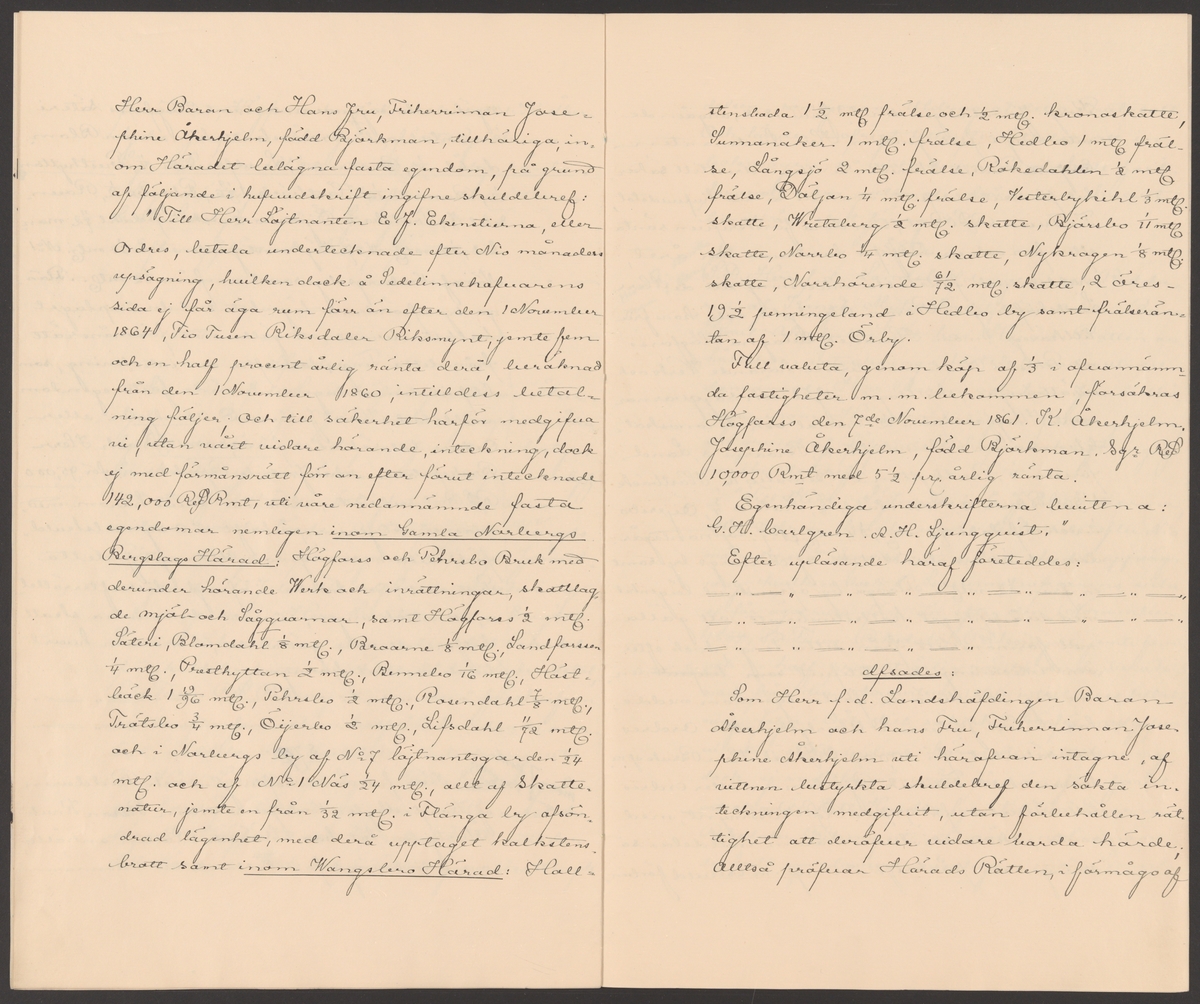 Herr Baron och Hans Fru, Friherrinnan Jose-
phine Åkerhjelm, född Björkman, tillhöriga, in-
om Häradet belägna fasta egendom, på grund
af följande i hufvudskrift ingifne skuldebref:
"Till Herr Löjtnanten E. J. Ekenstierna, eller
Ordres, betala undertecknade efter Nio månaders
upsägning, hvilken dock å Sedelinnehafvarens
sida ej får äga rum förr än efter den 1 November
1864, Tio Tusen Riksdaler Riksmynt, jemte fem
och en half procent årlig ränta derå, beräknad
från den 1 November 1860, intilldess betal-
ning följer; Och till säkerhet härför medgifva
vi, utan vårt vidare hörande, inteckning, dock
ej med förmånsrätt förr än efter förut intecknade
142,000 Rd Rmt, uti våre nedannämnde fasta
egendomar nemligen inom Gamla Norbergs
Bergslags Härad: Högforss och Pehrsbo Bruk med
derunder hörande Werk och inrättningar, skattlag-
de mjöl- och Sågqvarnar, samt Högforss ½ mtl.
Säteri, Blomdahl ⅛ mtl., Broarne ⅛ mtl., Landforssen
¼ mtl., Presthyttan ½ mtl., Bennebo 1/16 mtl., Häst-
bäck 1 19/96 mtl., Pehrsbo ½ mtl., Rosendahl ⅞ mtl.,
Trätsbo ¾ mtl., Öijerbo ½ mtl., Lifsdahl 11/72 mtl.
och i Norbergs by af No 7 löjtnantsgården 1/24
mtl. och af No 1 Näs 1/24 mtl., allt af Skatte
natur, jemte en från 1/32 mtl. i Flänga by afsön-
drad lägenhet, med derå upptaget kalkstens-
brott samt inom Wangsbro Härad: Hall-
stensboda 1 ½ mtl frälse och ½ mtl. kronoskatte,
Sunnanåker 1 mtl. frälse, Hedbo 1 mtl fräl-
se, Långsjö 2 mtl. frälse, Rökedahlen ½ mtl
frälse, Döljan ¼ mtl. frälse, Vesterbykihl ⅓ mtl.
skatte, Wretaberg ½ mtl. skatte, Bjärsbo 1/11 mtl
skatte, Norrbo ¼ mtl. skatte, Nykrogen ⅛ mtl.
skatte, Norrhörende 61/72 mtl. skatte, 2 öres-
19 ½ penningeland i Hedbo by samt frälserän-
tan af 1 mtl. Örby.
Full valuta, genom köp af ⅓ i ofvannämn-
da fastigheter m.m. bekommen, försäkras
Högforss den 7de November 1861. K. Åkerhjelm.
Josephine Åkerhjelm, född Björkman. Sgr Rd
10,000 Rmt med 5 ½ pr. årlig ränta.
Egenhändiga underskrifterna bevittna:
G. H. Carlgren. A. H. Ljungquist."
Efter upläsande häraf företeddes:
— " — " — " — " — " — " — " — "
— " — " — " — " — " — " — " — "
— " — " — " — " — "
Afsades:
Som Herr f.d. Landshöfdingen Baron
Åkerhjelm och hans Fru, Friherrinnan Jose-
phine Åkerhjelm uti härofvan intagne, af
vittnen bestyrkta skuldebref den sökta in-
teckningen medgifvit, utan förbehållen rät-
tighet att deröfver vidare varda hörde;
Alltså pröfvar Härads Rätten, i förmågo af